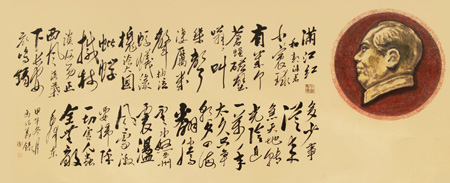 满江红
小小寰球
有几个
苍蝇碰壁
嗡嗡叫
几声
凄厉几
声抽泣
蚂蚁缘
槐夸大国
蚍蜉
撼树
谈何易正
西风落叶
下长安
飞鸣镝
多少事
从来急
天地转
光阴迫
一万年
太久只争
朝夕四海
翻腾
云水怒五洲
震荡
风雷激
要扫除
一切害人虫
全无敌